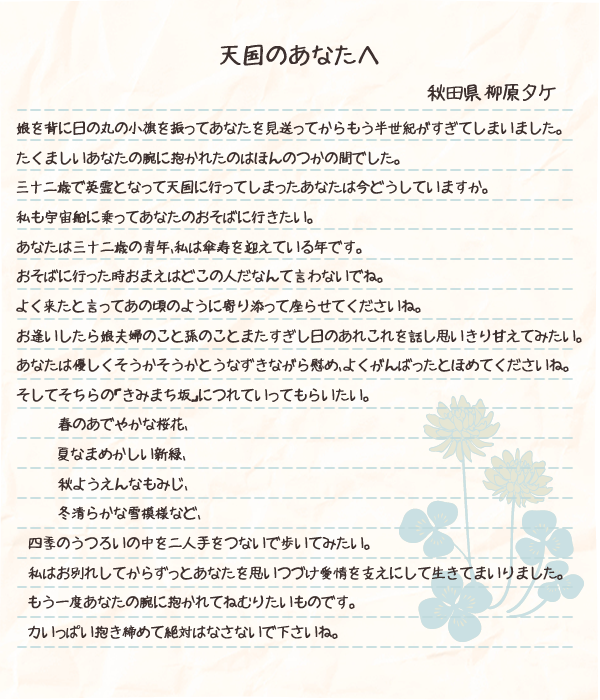 天国のあなたへ
秋田県 柳原タケ
娘を背に日の丸の小旗を振ってあなたを見送ってからもう半世紀がすぎてしまいました。
たくましいあなたの腕に抱かれたのはほんのつかの間でした。
三十二歳で英霊となって天国に行ってしまったあなたは今どうしていますか。
私も宇宙船に乗ってあなたのおそばに行きたい。
あなたは三十二歳の青年、私は傘寿を迎えている年です。
おそばに行った時おまえはどこの人だなんて言わないでね。
よく来たと言ってあの頃のように寄り添って座らせてくださいね。
お逢いしたら娘夫婦のこと孫のことまたすぎし日のあれこれを話し思いきり甘えてみたい。
あなたは優しくそうかそうかとうなずきながら慰め、よくがんばったとほめてくださいね。
そしてそちらの『きみまち坂』につれていってもらいたい。
春のあでやかな桜花、
夏なまめかしい新緑、
秋ようえんなもみじ、
冬清らかな雪模様など、
四季のうつろいの中を二人手をつないで歩いてみたい。
私はお別れしてからずっとあなたを思いつづけ愛情を支えにして生きてまいりました。
もう一度あなたの腕に抱かれてねむりたいものです。
力いっぱい抱き締めて絶対はなさないで下さいね。